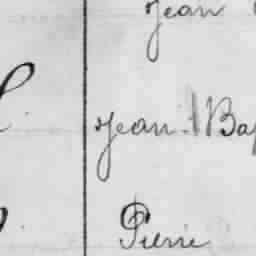 Jean
Jean Bap
Pierre